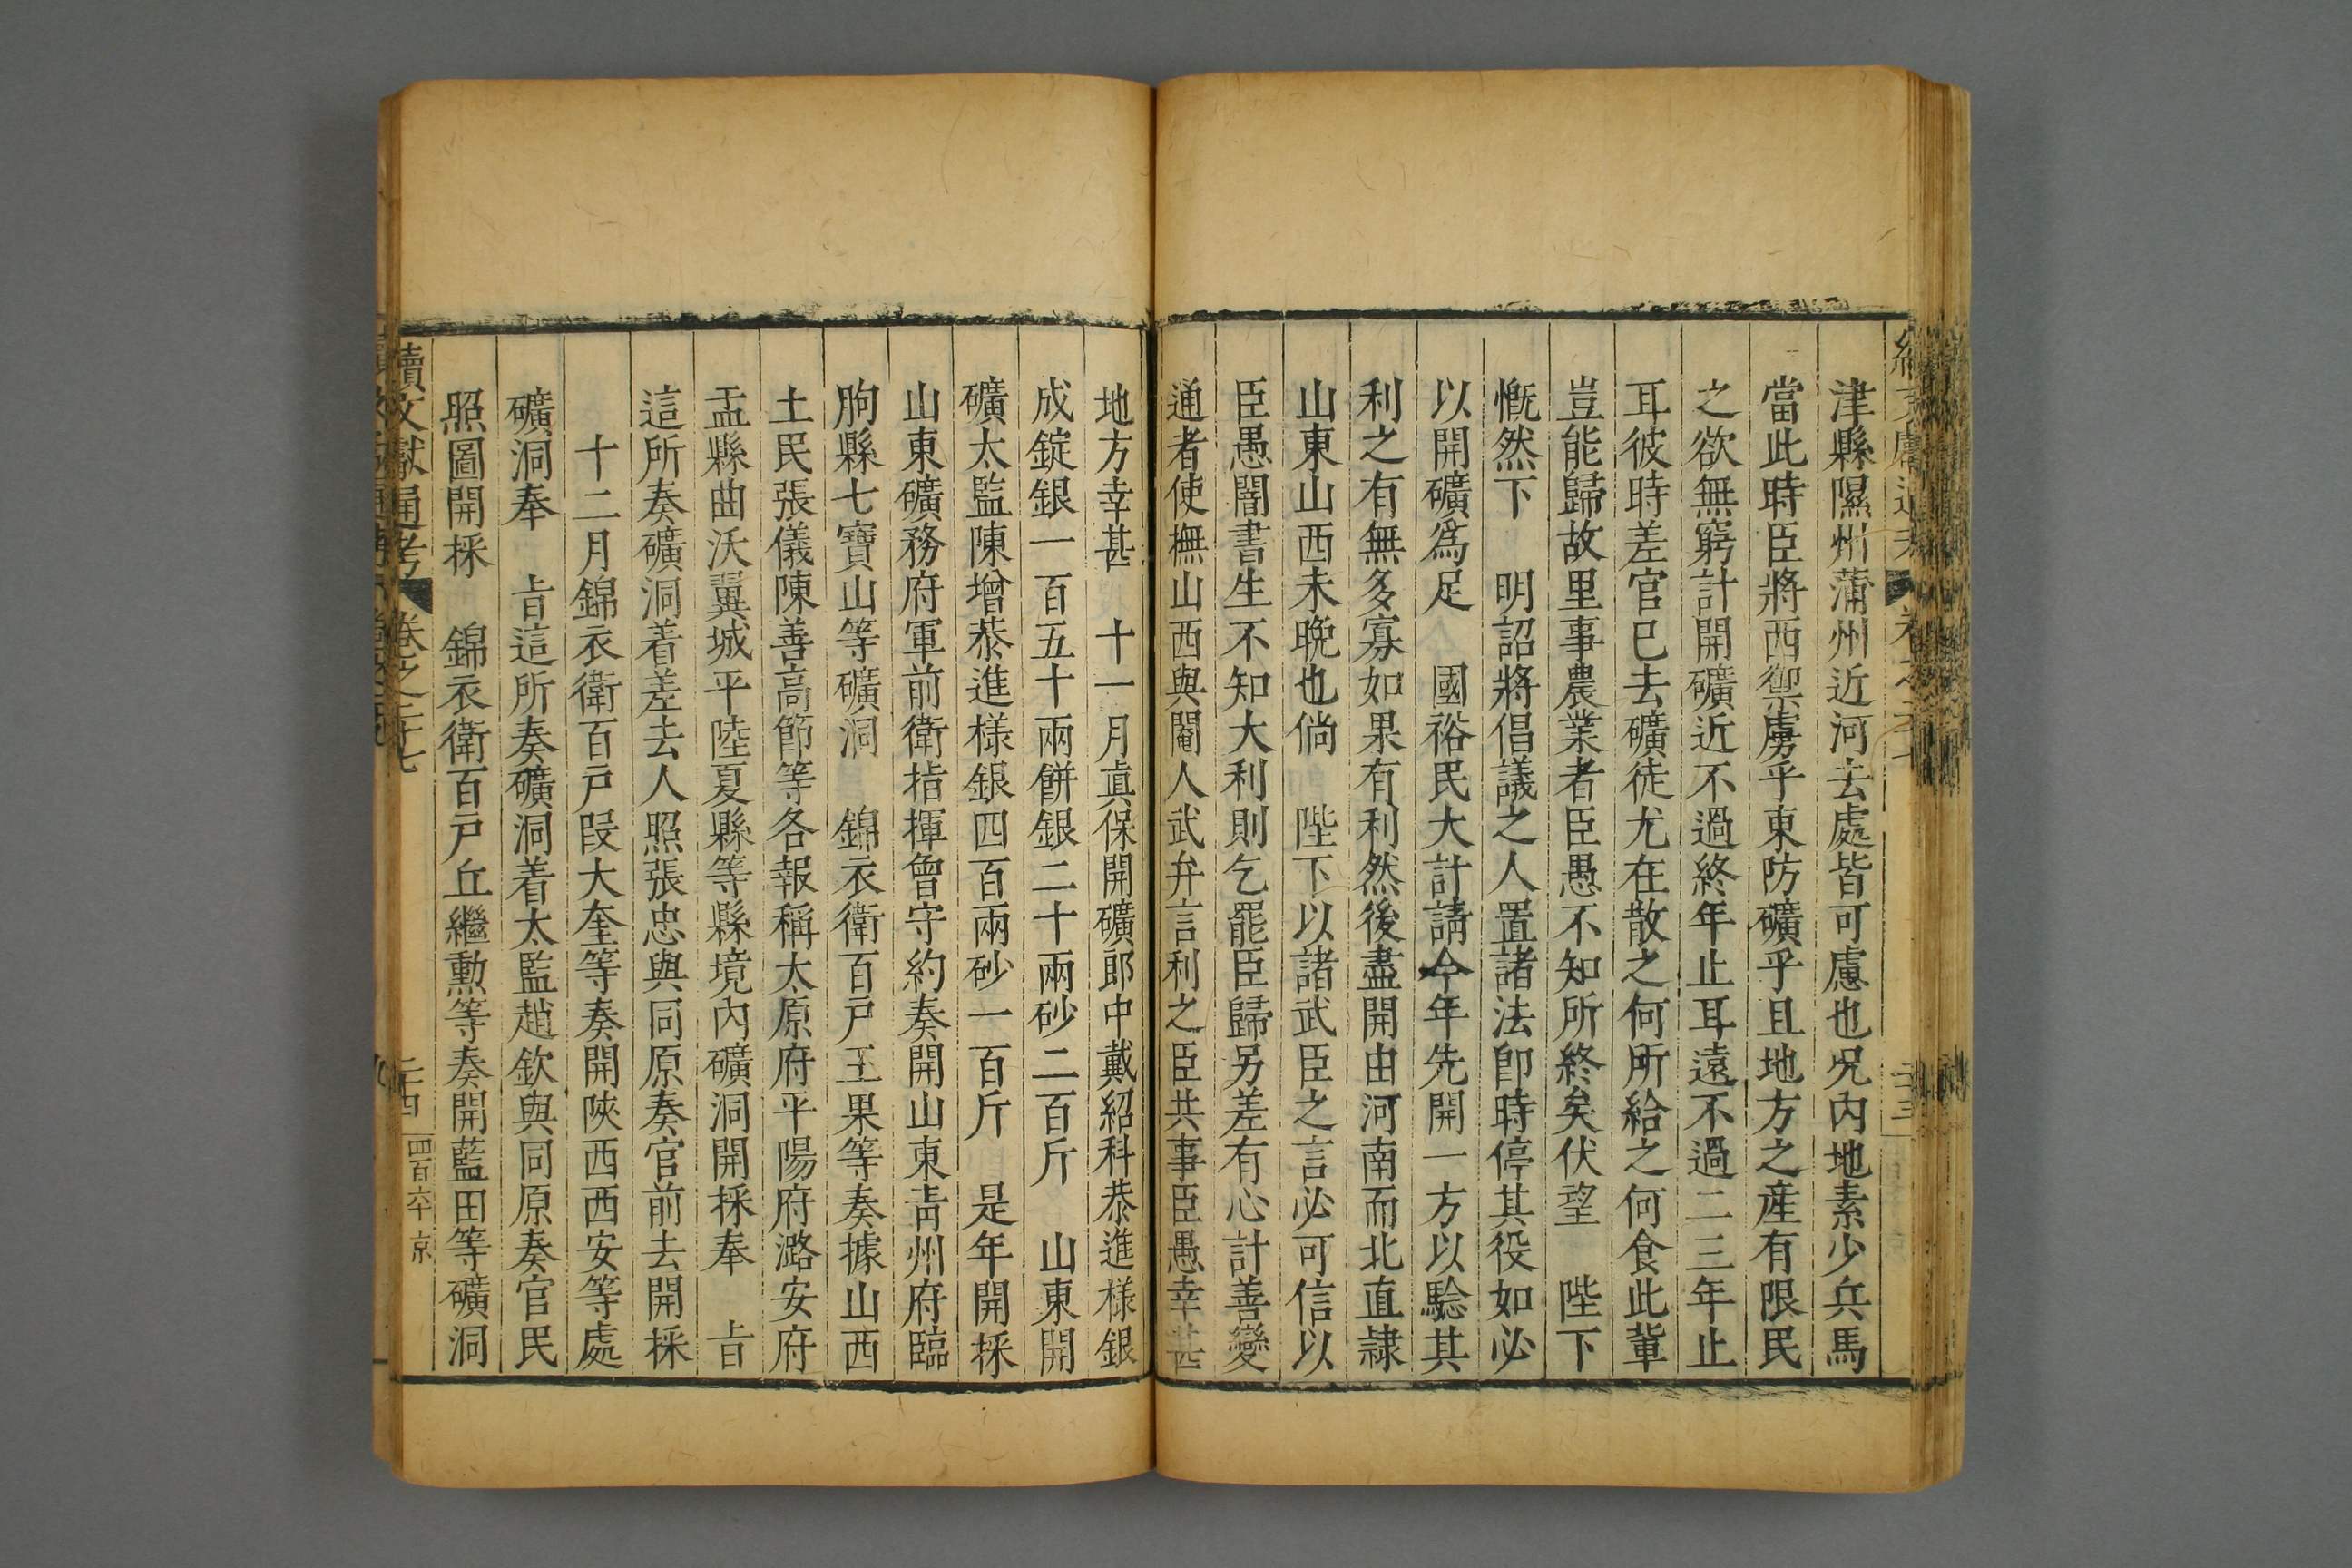 津縣隰州蒲州近河去處皆可慮也況內地素少兵馬
當此時臣將西禦虜乎東防礦乎且地方之產有限民
之欲無窮計開礦近不過終年止耳遠不過二三年止
耳彼時差官已去礦徒尤在散之何所給之何食此輩
豈能歸故里事農業者臣愚不知所終矣伏望 陛下
慨然下 明詔將倡議之人置諸法卽時停其役如必
以開礦爲足 國裕民大計請今年先開一方以驗其
利之有無多寡如果有利然後盡開由河南而北直隷
山東山西未晚也倘 陛下以諸武臣之言必可信以
臣愚闇書生不知大利則乞罷臣歸另差有心計善變
通者使撫山西與閹人武弁言利之臣共事臣愚幸甚
地方幸甚 十一月眞保開礦郎中戴紹科恭進樣銀
成錠銀一百五十兩餅銀二十兩砂二百斤 山東開
礦太監陳增恭進樣銀四百兩砂一百斤 是年開採
山東礦務府軍前衛指揮曾守約奏開山東靑州府臨
朐縣七寶山等礦洞 錦衣衛百戶王果等奏據山西
土民張儀陳善高節等各報稱太原府平陽府潞安府
盂縣曲沃翼城平陸夏縣等縣境內礦洞開採奉 旨
這所奏礦洞着差去人照張忠與同原奏官前去開採
十二月錦衣衛百戶段大奎等奏開陝西西安等處
礦洞奉 旨這所奏礦洞着太監趙欽與同原奏官民
照圖開採 錦衣衛百戶丘繼勲等奏開藍田等礦洞
續文獻通考 卷之二十七 二十四 四百六十 京